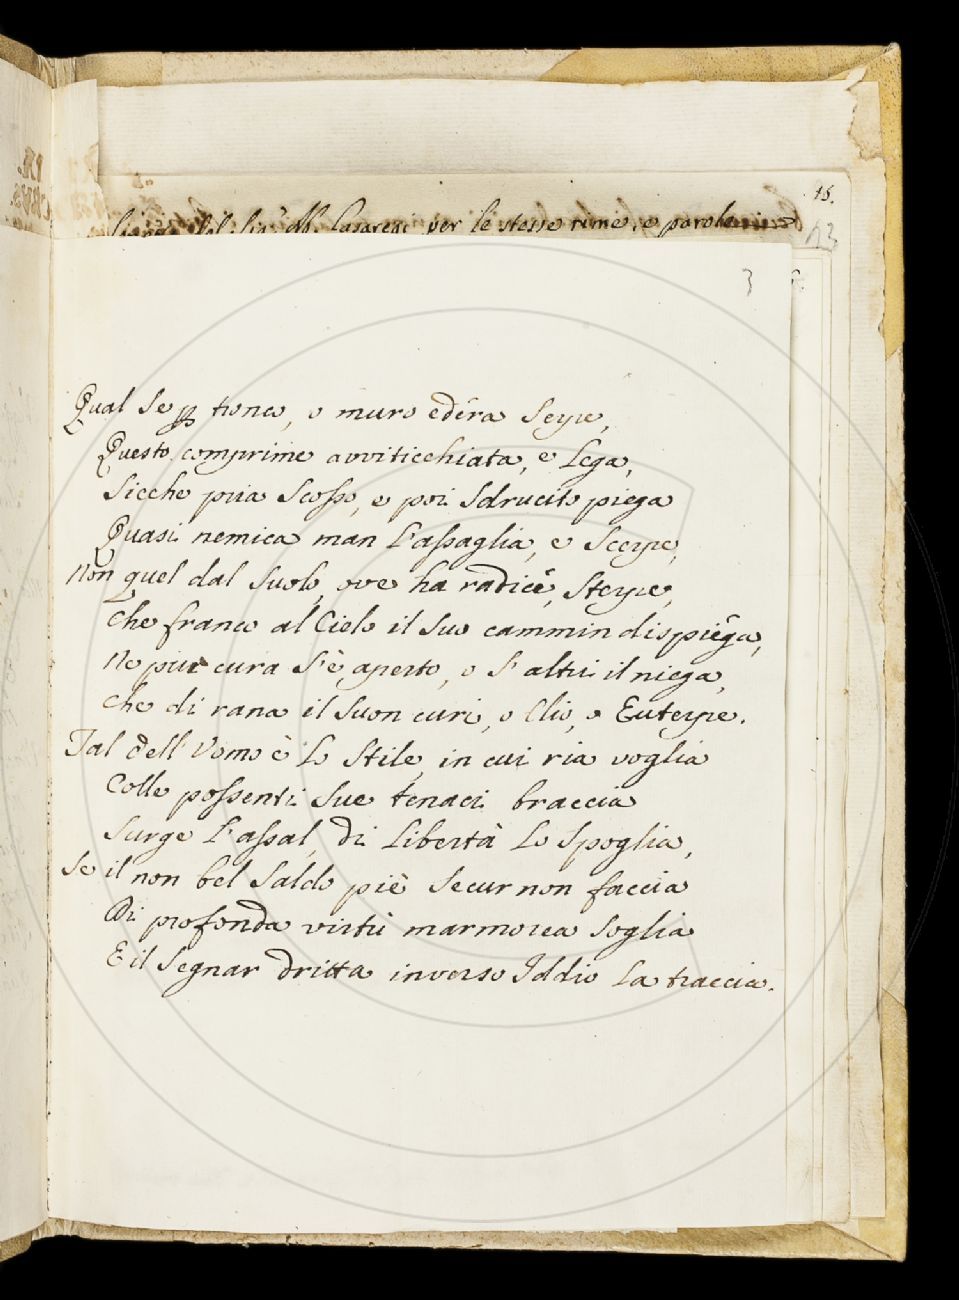 15.
dal Sig.r Ab. Casaregi per le stesse rime, e parole
13
3
Qual se per tronco, o muro edéra serpe,
Questo comprime avviticchiata, e lega,
Sicche pria scosso, e poi sdrucito piega
Quasi nemica man l'assaglia, e scerpe,
Non quel dal suolo, ove ha radice, sterpe,
Che franco al Cielo il suo cammin dispiega,
Ne piu cura s'è aperto, o s'altri il niega,
Che di rana il suon curi, o Clio, o Euterpe.
Tal dell'Uomo è lo stile, in cui ria voglia
Colle possenti sue tenaci braccia
Surge l'assal, di libertà lo spoglia,
Se il non bel saldo piè secur non faccia
Di profonda virtù marmorea soglia
E il segnar dritta inverso Iddio la traccia.